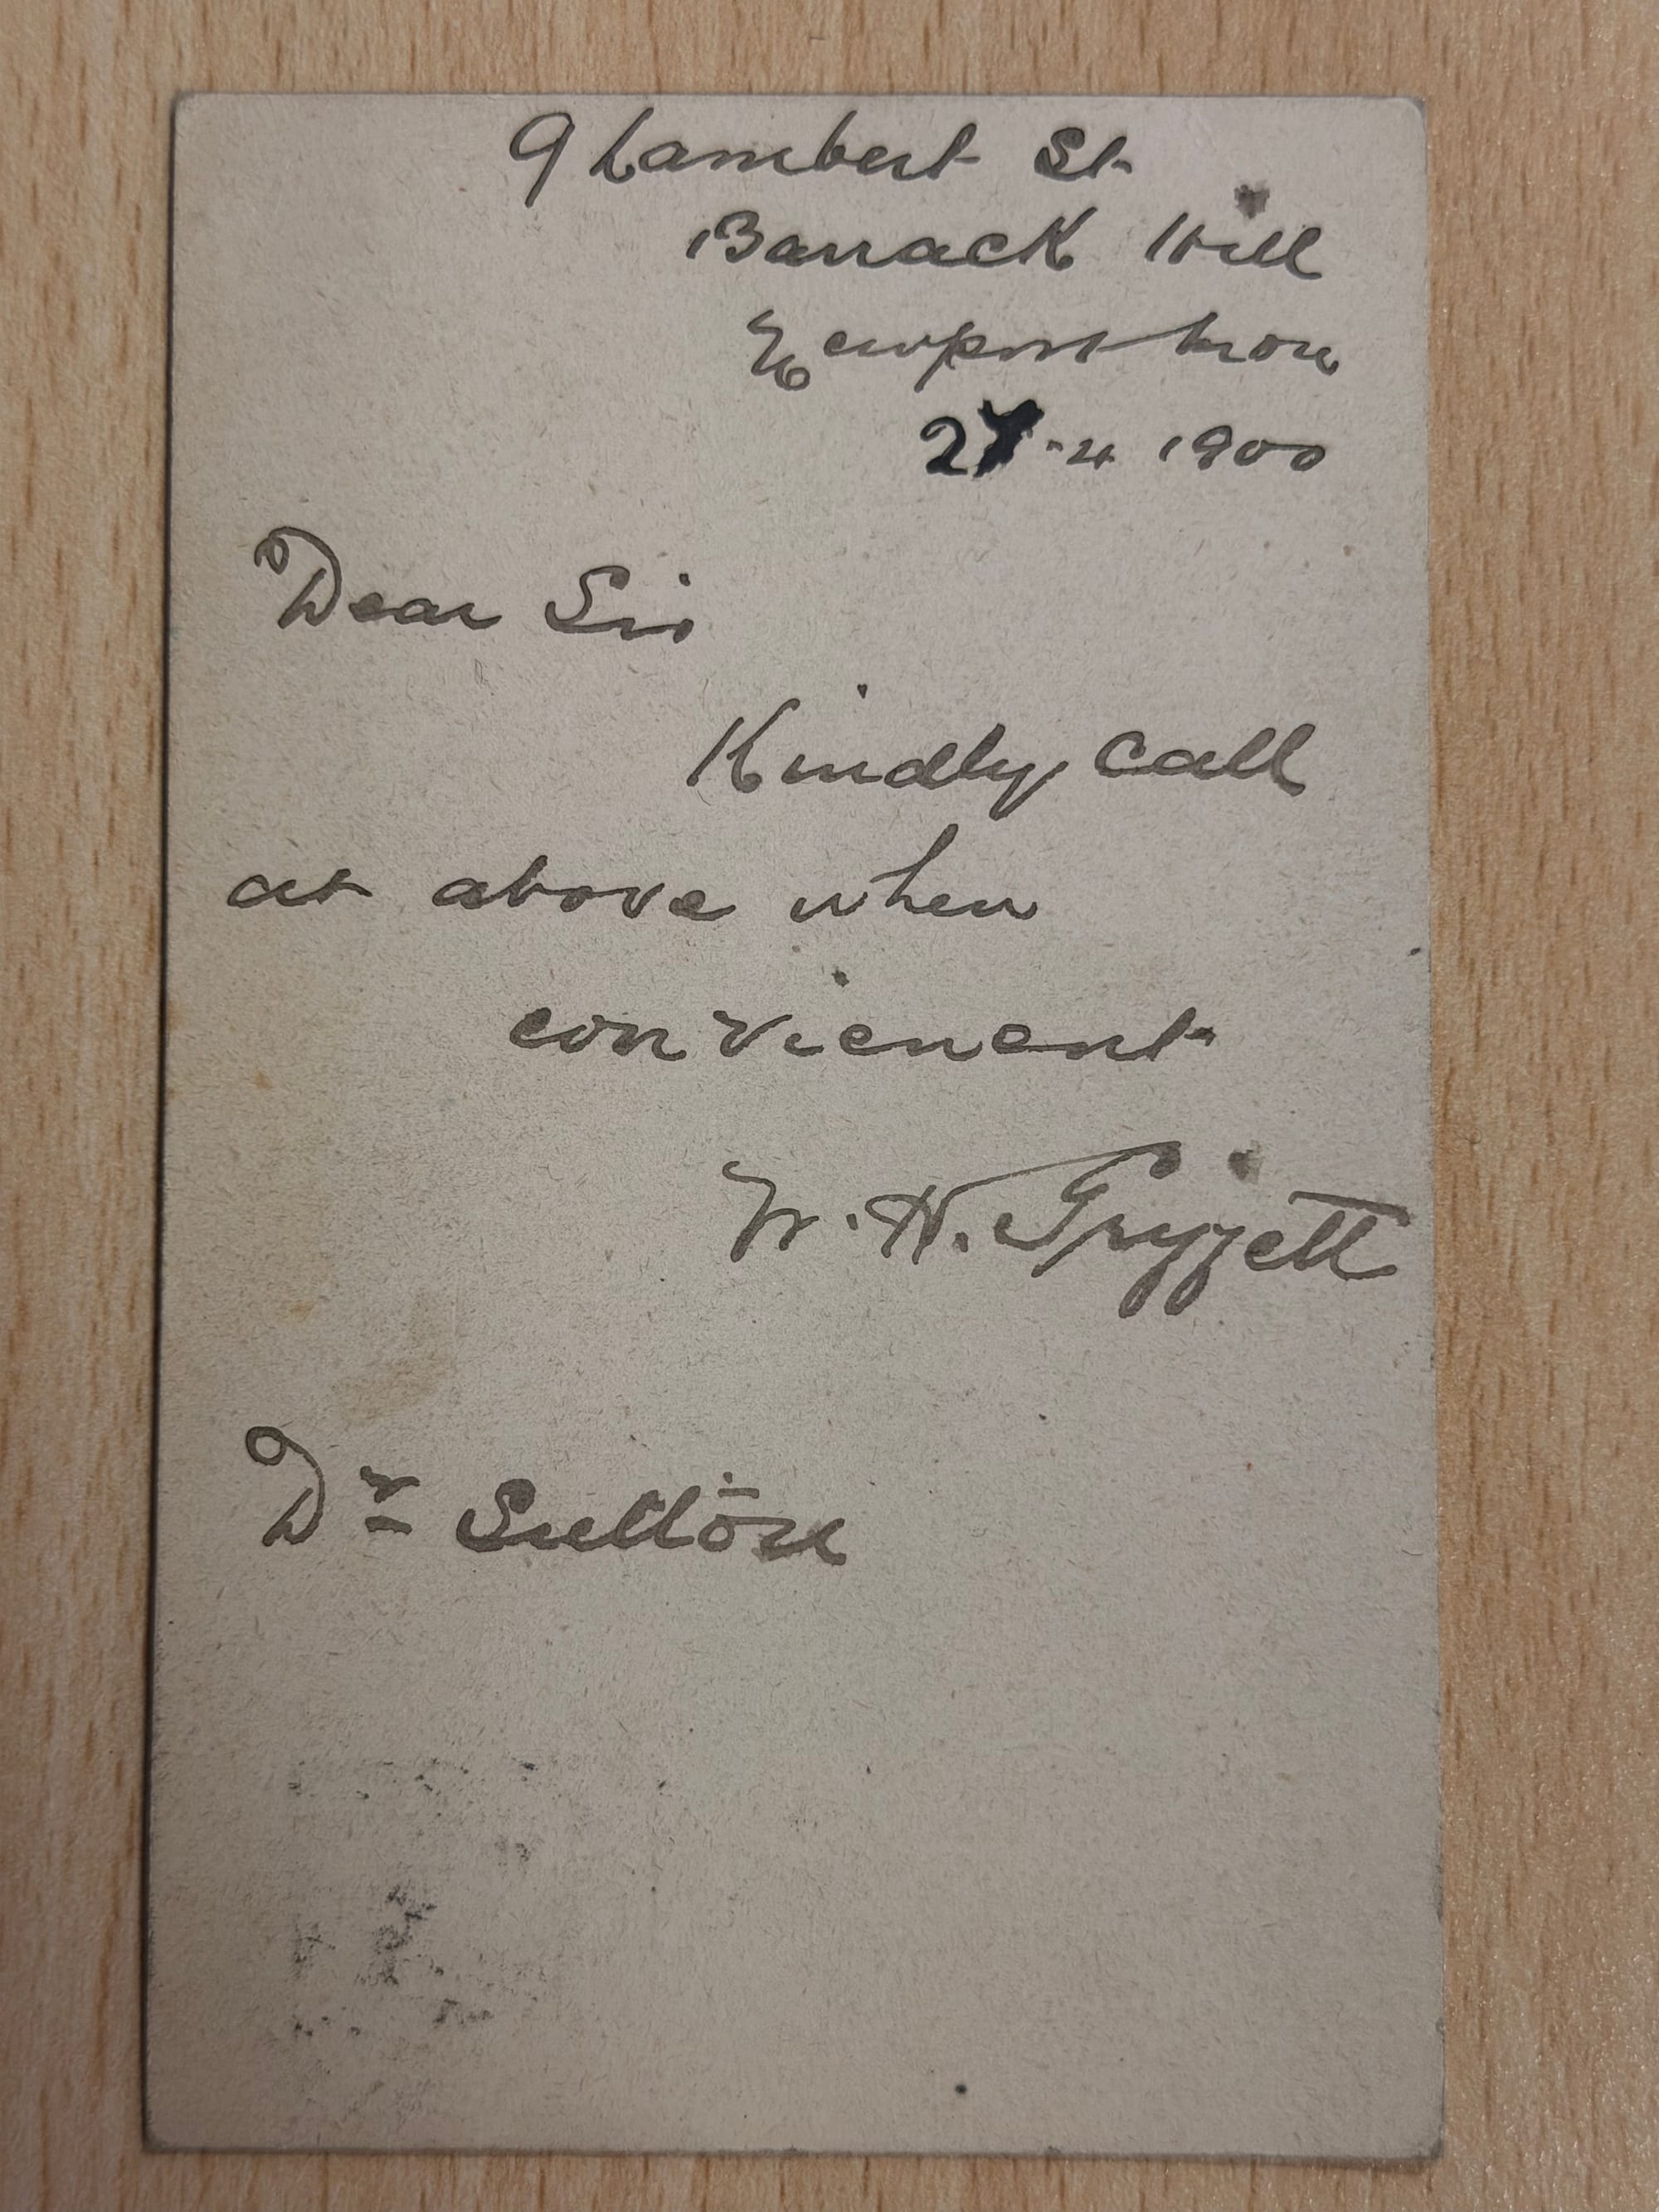 9 Lambert St
Barrack Hill
Newport Mon
27-4 1900
Dear Sir
Kindly Call
at above when
convienent
W. H.
Dr Sutton